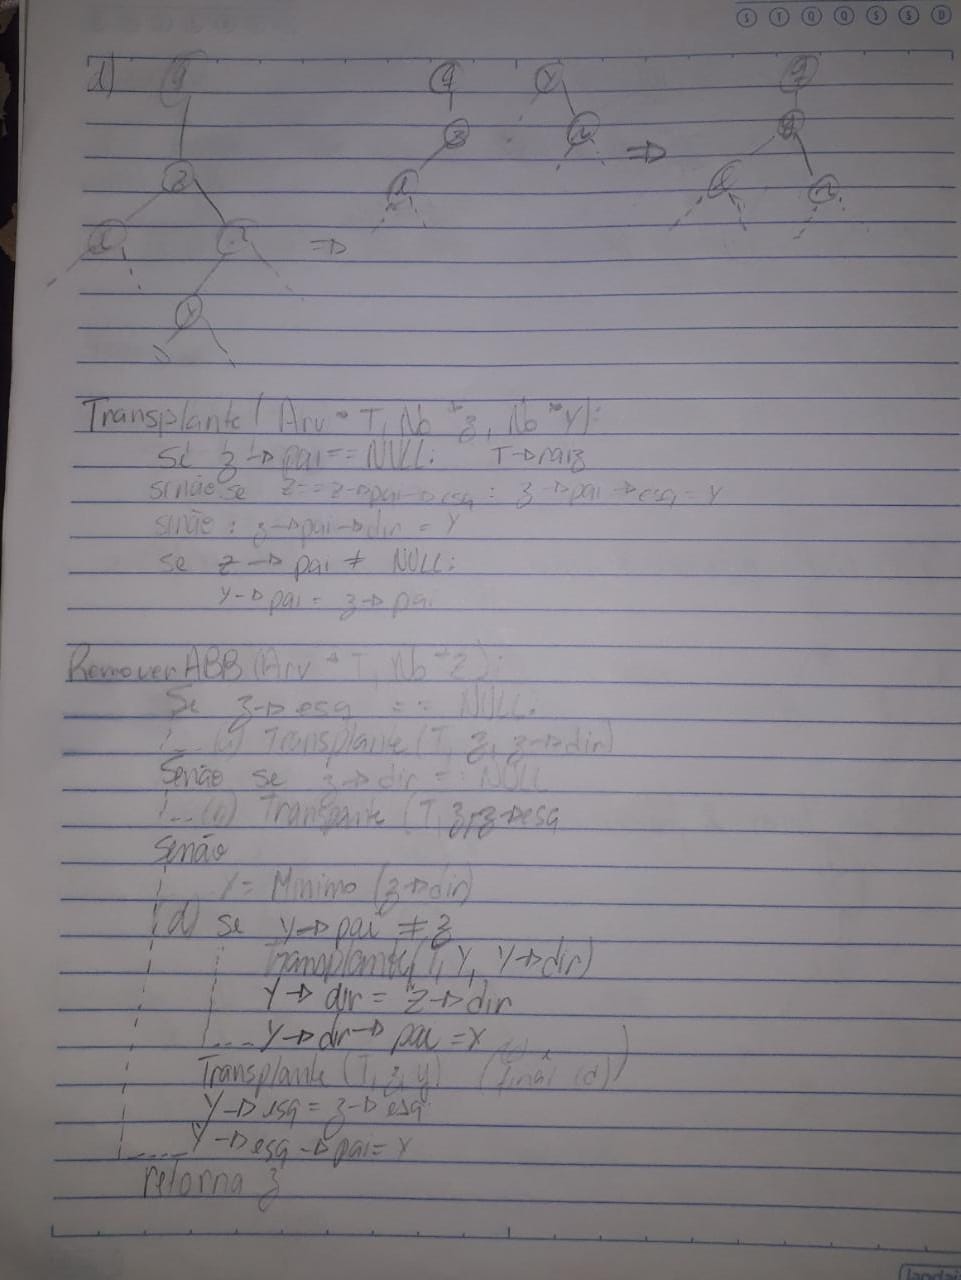 S T Q Q S S D
d)
q q y q
z z r y
l r l l r
y
Transplante (Arv * T, No * z, No * y):
Se z -> pai == NULL: T -> raiz
sinão se z == z -> pai -> esq : z -> pai -> esq = y
sinão : z -> pai -> dir = y
se z -> pai ≠ NULL:
y -> pai = z -> pai
Remover ABB (Arv * T, No * z):
Se z -> esq == NULL:
Transplante (T, z, z -> dir)
Senão se z -> dir == NULL
Tranpante (T, z, z -> esq
Senão
y = Minimo (z -> dir)
(d) se y -> pai ≠ z
Transplante (T, y, y -> dir)
y -> dir = z -> dir
y -> dir -> pai = y
Transplante (T, z, y) (final (d))
y -> esq = z -> esq
y -> esq -> pai = y
retorna z